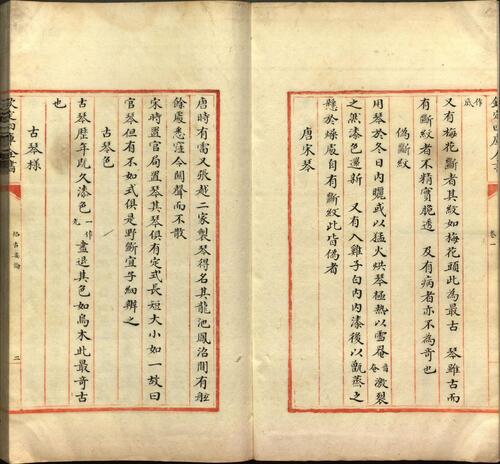 又有梅花斷者其紋如梅花頭此為最古 琴雖古而
有斷紋者不精實脆透 及有病者亦不為奇也
偽斷紋
用琴於冬日內曬或以猛火烘琴極熱以雪罨音 激裂
之然漆色還新 又有入雞子白內漆後以甑蒸之
懸於燥處自有斷紋此皆偽者
唐宋琴
唐時有雷文張越二家製琴得名其龍池鳳沼間有舷
餘處悉窪令闗聲而不散
宋時置官局置琴其琴俱有定式長短大小如一故曰
官琴但有不如式俱是野斲宜子細辨之
古琴色
古琴歴年既久漆色一作光盡退其色如烏木此最奇古
也
古琴様
格古要論
二